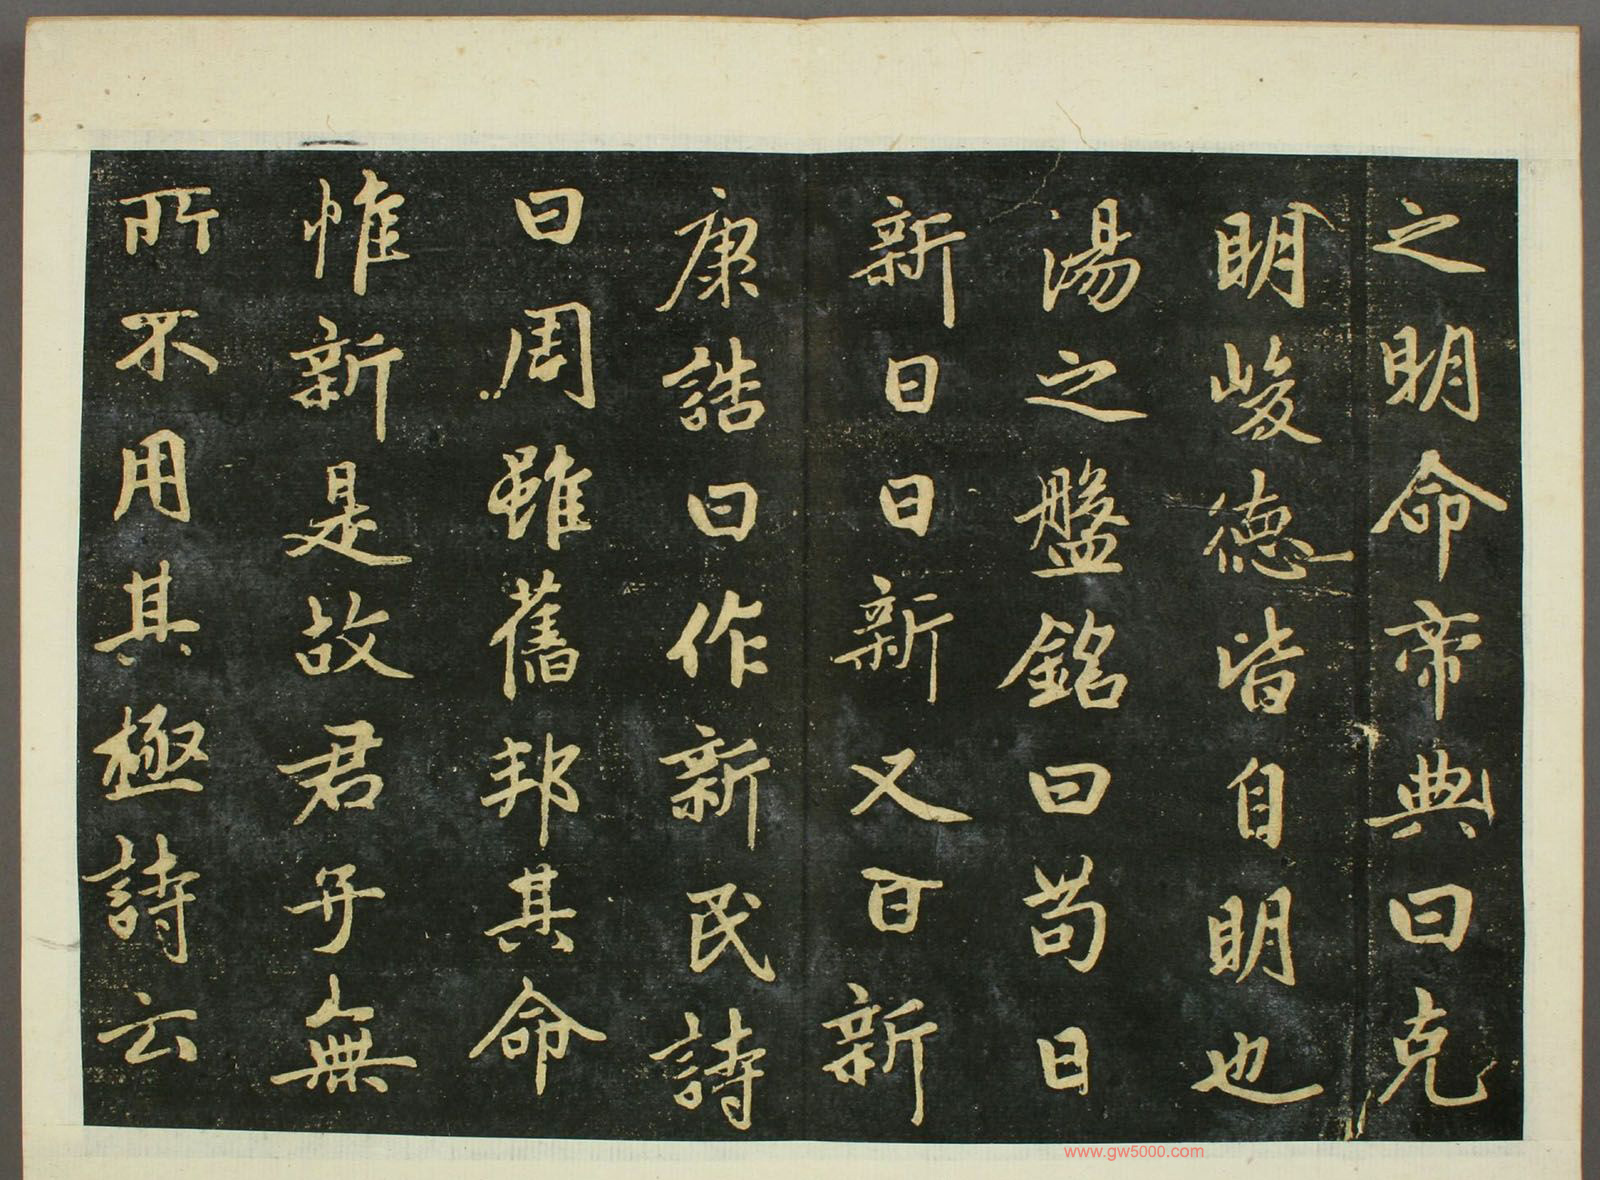 之明命帝典曰克
明峻德皆自明也
湯之盤銘曰苟日
新日日新又日新
康誥曰作新民詩
曰周雖舊邦其命
惟新是故君子無
所不用其極詩云
www.gw5000.com